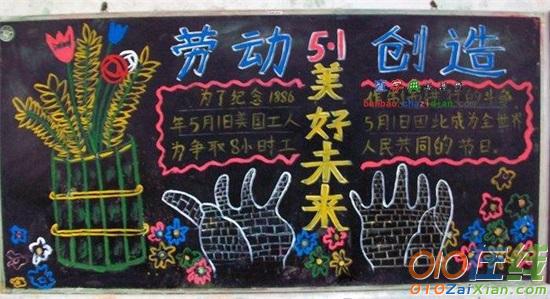 劳动 5·1 创造
美好未来
为了纪念1886
年5月1日美国工人
为争取8小时工
作
5月1日因此成为全世界
人民共同的节日。
banbao.chazidian.com
010在线
010ZaiXian.com